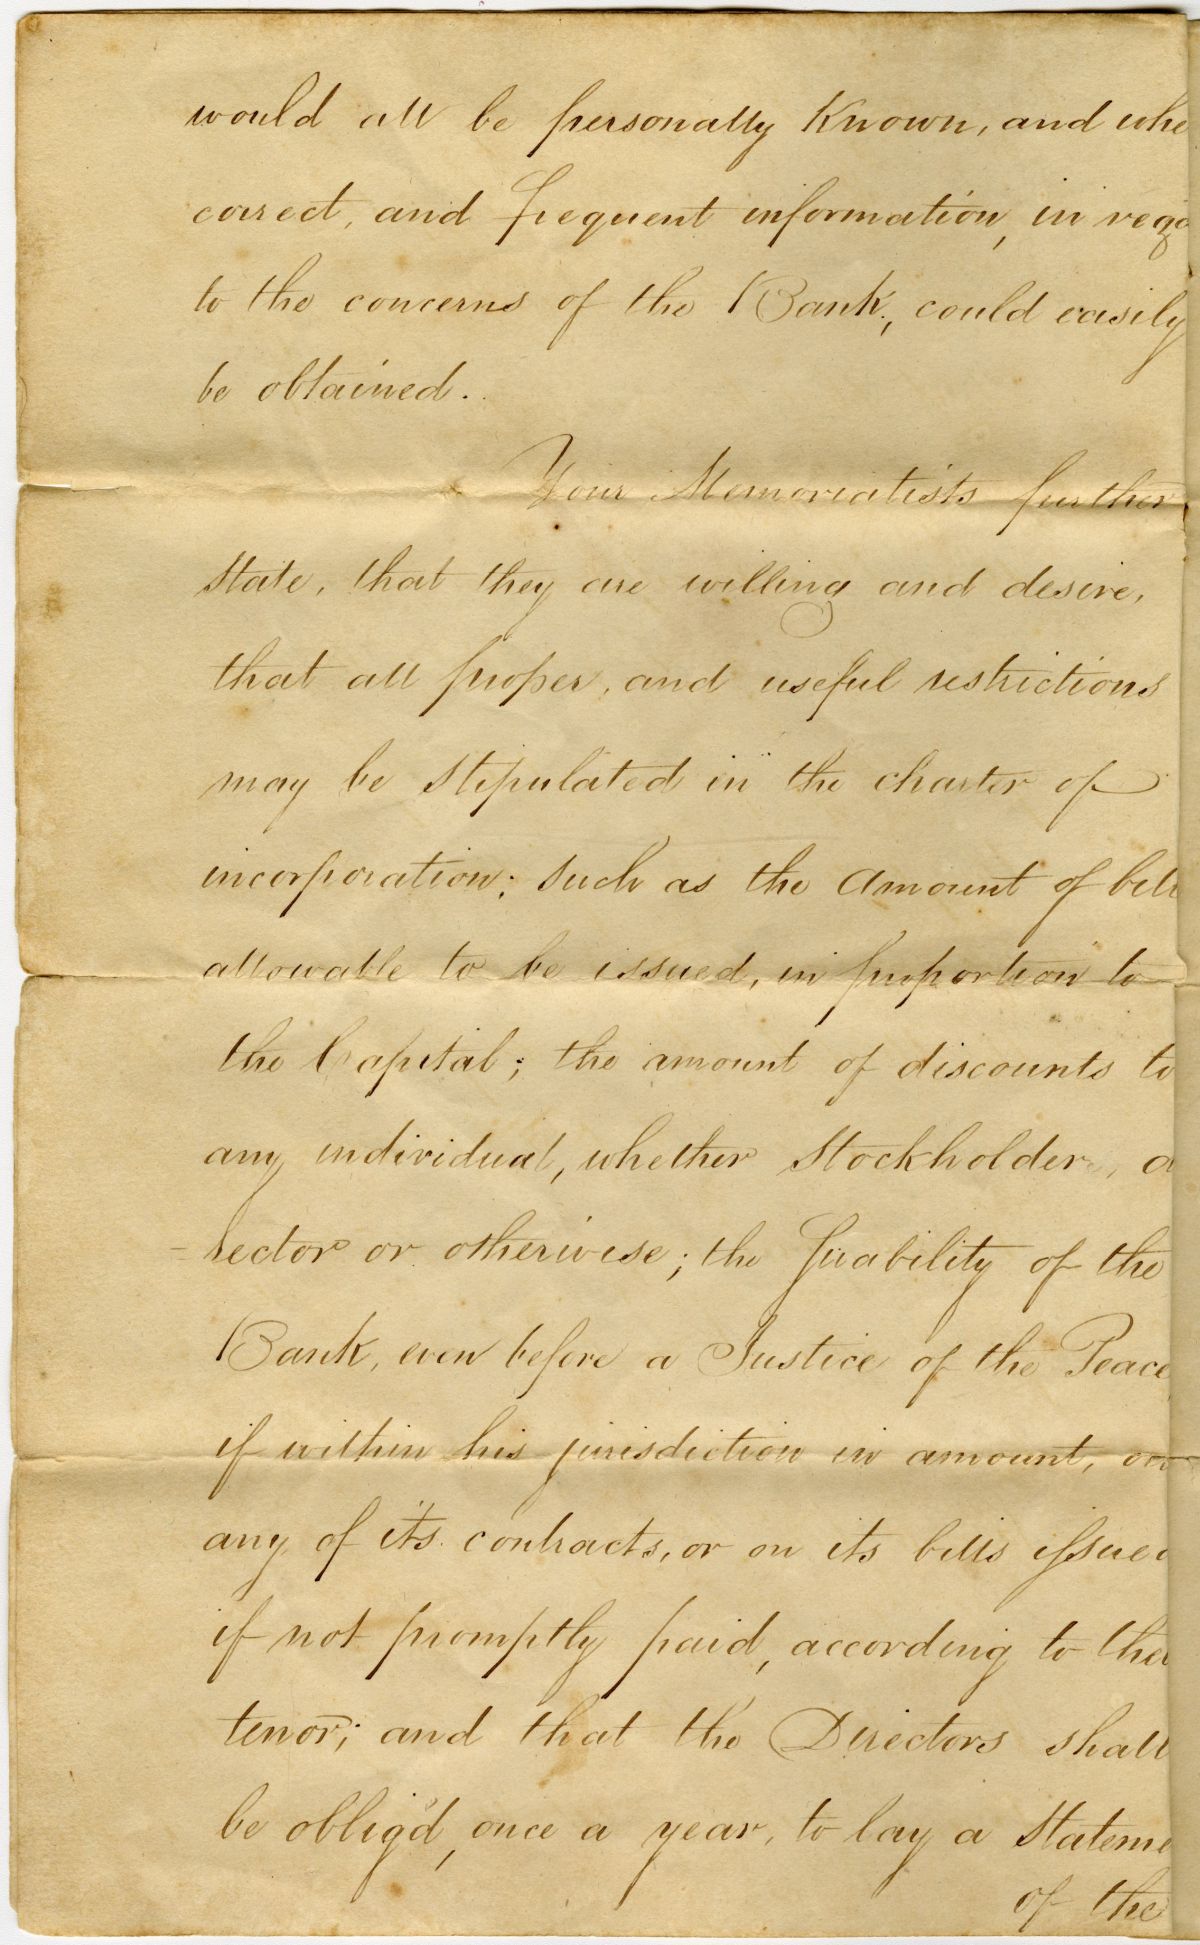 would all be personally Known, and whe
correct, and frequent information, in rega
to the concerns of the Bank, could easily
be obtained.
Your Memorialists further
state, that they are willing and desire,
that all proper, and useful restrictions
may be stipulated in the charter of
incorporation; such as the amount of bills
allowable to be issued, in proportion to
the Capital; the amount of discounts to
any individual, whether Stockholder, d
-rector or otherwise; the suability of the
Bank, even before a Justice of the Peace,
if within his jurisdiction in amount, on
any of it's contracts, or on its bills issued
if not promptly paid, according to their
tenor; and that the Directors shall
be oblig'd, once a year, to lay a Stateme
of the